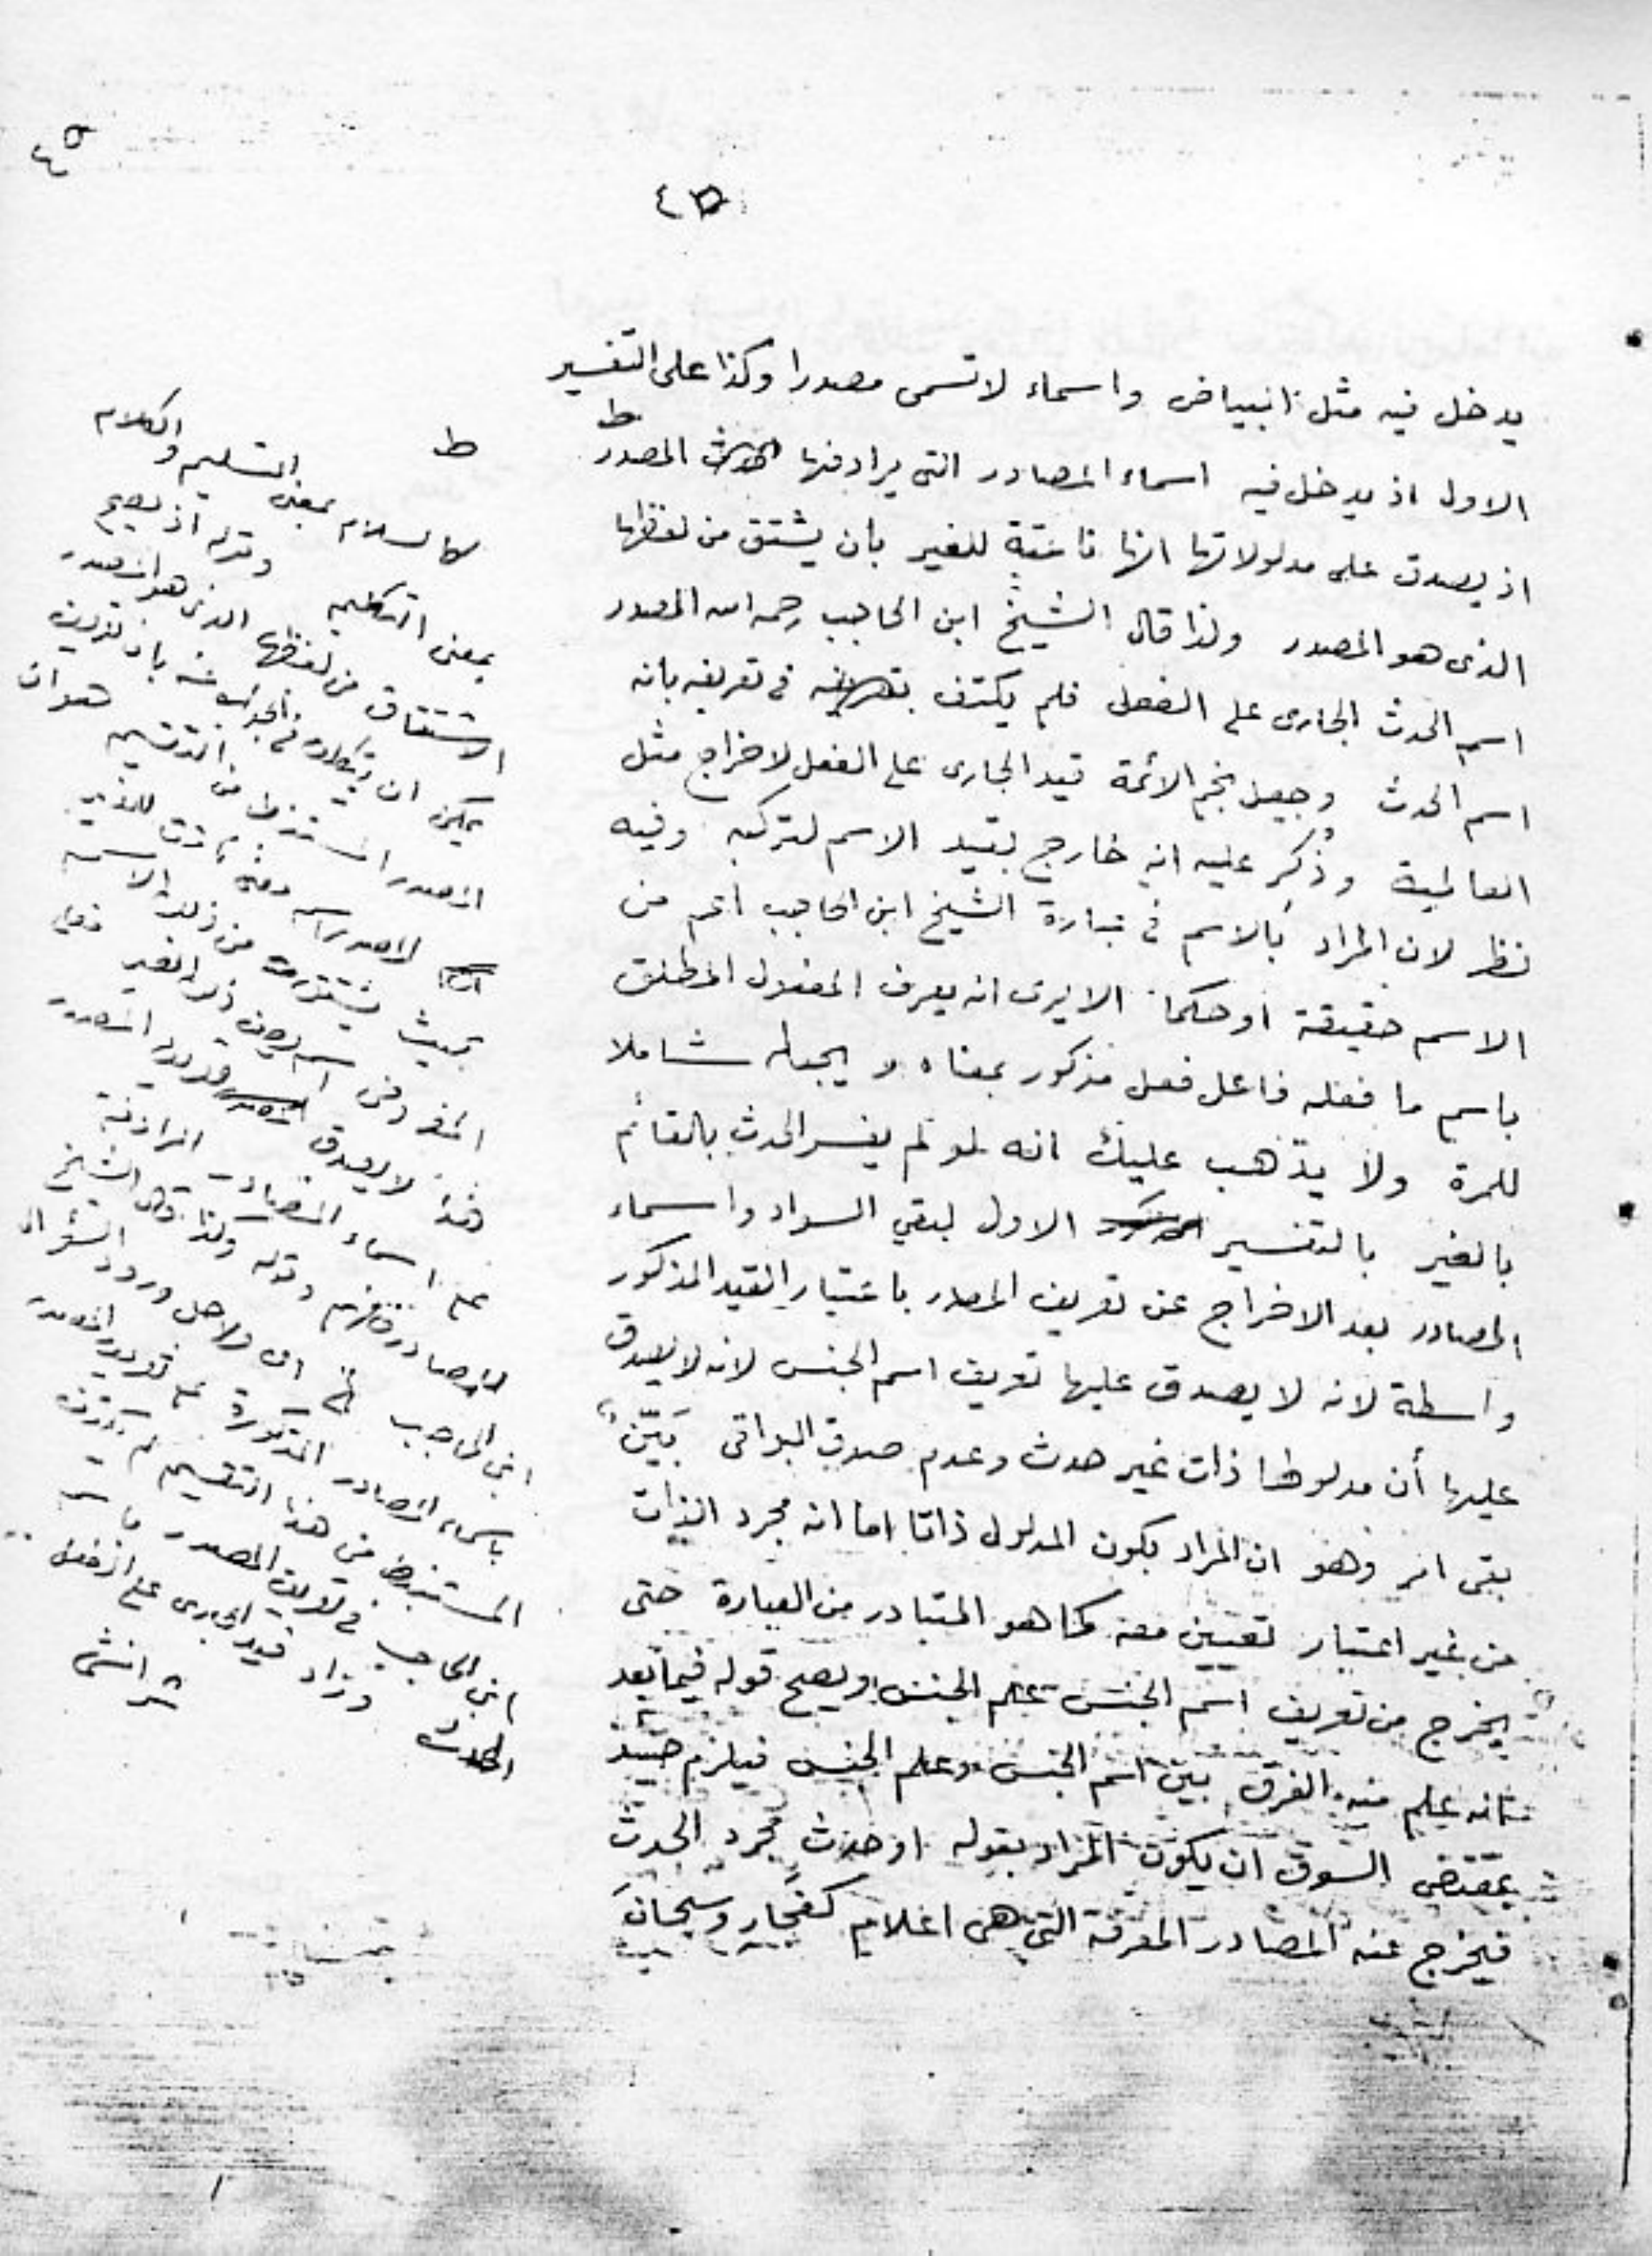 ٤٥
٤٥
يدخل فيه مثل البياض واسماء لا تسمى مصدرا وكذا على التفسير
الاول اذ يدخل فيه اسماء المصادر التى يرادفها المصدر
اذ يصدق على مدلولاتها انها قائمة للغير بان يشتق من لفظها
الذى هو المصدر ولذا قال الشيخ ابن الحاجب رحمه الله المصدر
اسم الحدث الجارى على الفعل فلم يكتف فى تعريفه بانه
اسم الحدث وجعل نجم الائمة قيد الجارى على الفعل لاخراج مثل
العالمية وذُكر عليه انه خارج بقيد الاسم لتركبه وفيه
نظر لان المراد بالاسم فى عبارة الشيخ ابن الحاجب اعم من
الاسم حقيقة او حكما الا يرى انه يعرف المفعول المطلق
باسم ما فعله فاعل فعل مذكور بمعناه ويجعله شاملا
للمرة ولا يذهب عليك انه لو لم يفسر الحدث بالقائم
بالغير بالتفسير الاول لبقي السواد واسماء
المصادر بعد الاخراج عن تعريف المصادر باعتبار القيد المذكور
واسطة لانه لا يصدق عليها تعريف اسم الجنس لانه لا يصدق
عليها أن مدلولها ذات غير حدث وعدم صدق البواقى بَيِّن
بقى امر وهو ان المراد بكون المدلول ذاتا اما انه مجرد الذات
من غير اعتبار تعيين معه كما هو المتبادر من العبارة حتى
يخرج من تعريف اسم الجنس علم الجنس ويصح قوله فيما بعد
فانه علم منه الفرق بين اسم الجنس وعلم الجنس فيلزم حينئذ
بمقتضى السوق ان يكون المراد بقوله او حدث مجرد الحدث
فيخرج عنه المصادر المعرفة التى هى اعلام كفجار وسبحان
ط
ط
كالسلام بمعنى التسليم والكلام
بمعنى التكليم وقوله اذ يصح
الاشتقاق من لفظها الذى هو المصدر
يمكن ان بان تعريف
المصدر المستنبط من التقسيم هو ان
بحيث يشتق من ذلك الاسم
لا يصدق تعريف المصدر
على اسماء المصادر المرادفة
للمصادر وقوله ولذا قال الشيخ
ابن الحاجب الخ اى ولاجل ورود السؤال
باسماء المصادر المذكورة على تعريف المصدر
المستنبط من هذا التقسيم لم يكتف
ابن الحاجب فى تعريف المصدر
الحدث وزاد قيد الجارى على الفعل